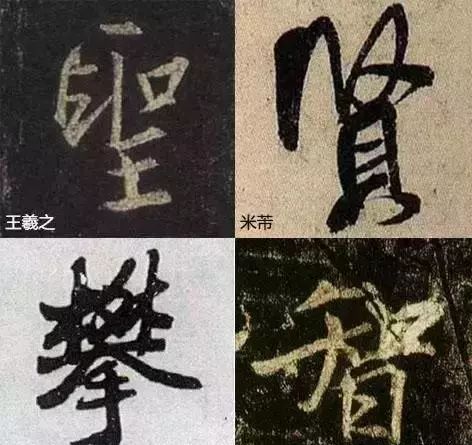 聖
王羲之
賢
米芾
攀
智